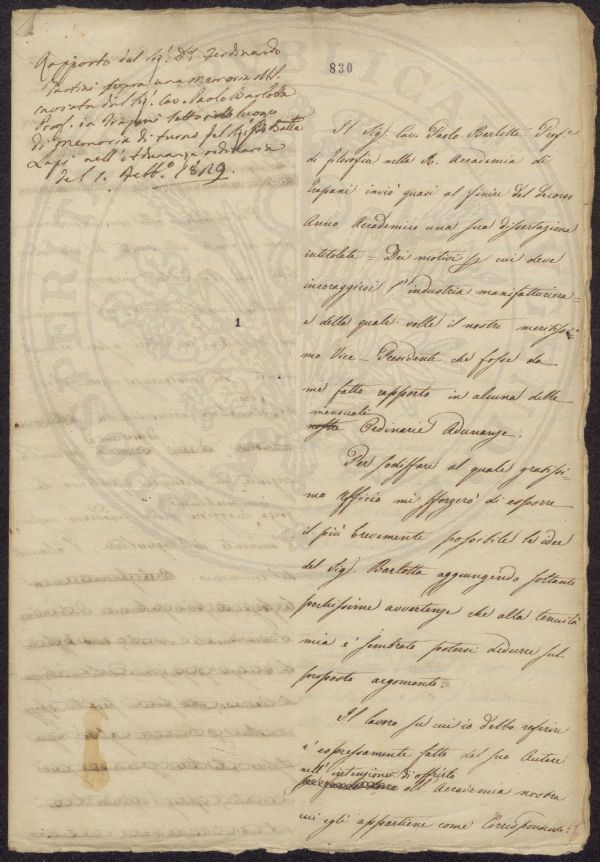 Rapporto del Sig.r D.r Ferdinando
Tartini sopra una memoria del
Sig.r Cav. Paolo Barlotta
Prof. in Trapani letto in luogo
di memoria di turno del Sig.
Lapi nell'Adunanza ordinaria
del 1. Febb.o 1829.
830
Il Sig. Cav. Paolo Barlotta Prof.e
di filosofia nella R. Accademia di
Trapani inviò quasi al finire del decorso
Anno Accademico una sua dissertazione
intitolata = Dei motivi per cui deve
incoraggirsi l'industria manifatturiera =
e della quale volle il nostro meritissi
mo Vice-Presidente che fosse da
me fatto rapporto in alcuna delle
mensuali
nostre Ordinarie Adunanze.
Per sodisfare al quale gratissi-
mo Officio mi sforzerò di esporre
il più brevemente possibile le idee
del Sig. Barlotta aggiungendo soltanto
pochissime avvertenze che alla tenuità
mia è sembrato potersi dedurre sul
proposto argomento.
Il lavoro su cui io debbo referire
è espressamente fatto dal suo Autore
nell'intenzione di offrirlo
all'Accademia nostra
cui egli appartiene come Corrispondente:
1